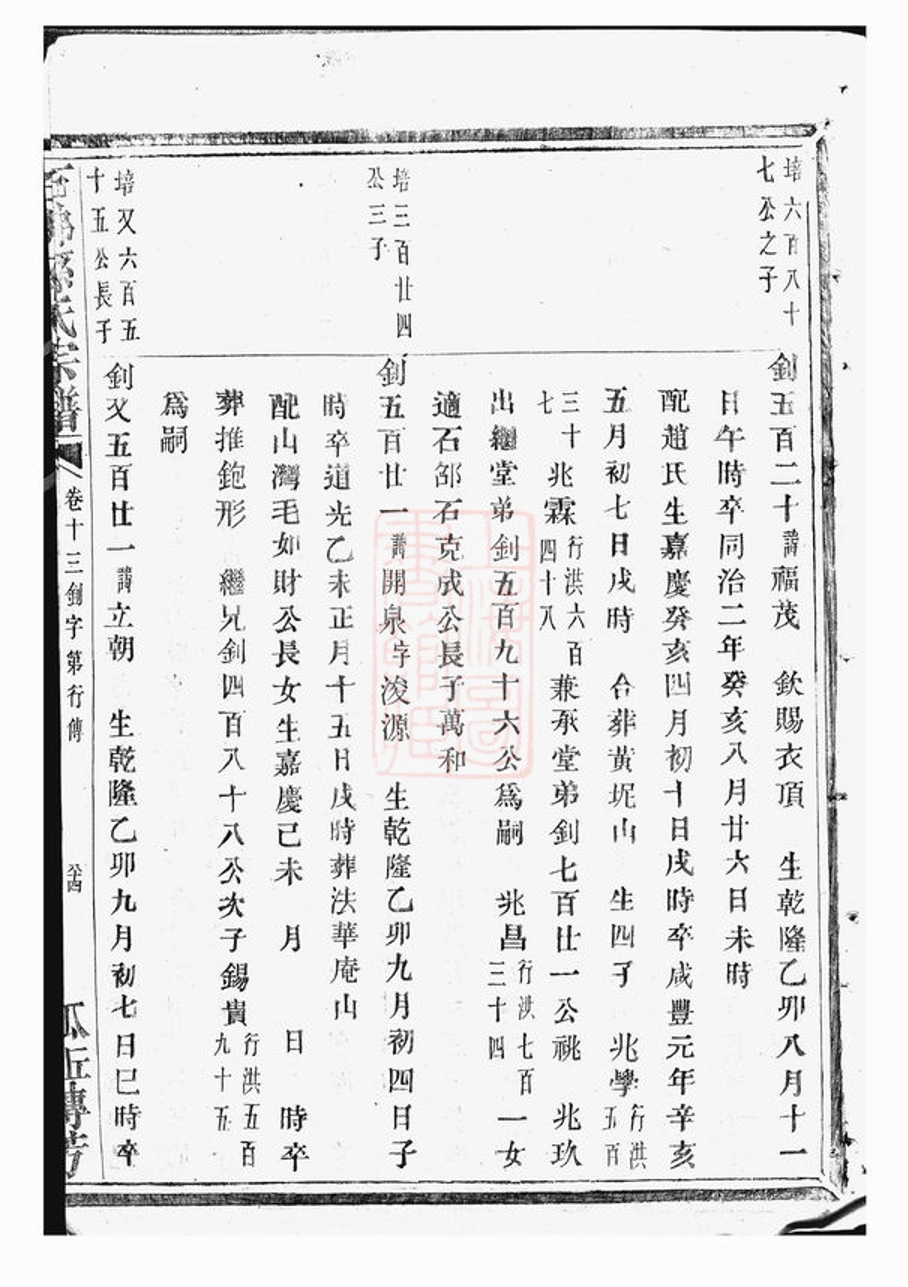 培六百八十
七公之子
釗五百二十諱福茂　欽賜衣頂　生乾隆乙卯八月十一
日午時卒同治二年癸亥八月廿六日未時
配趙氏生嘉慶癸亥四月初十日戌時卒咸豐元年辛亥
五月初七日戌時　合葬黃坭山　生四子　兆學行洪五百
三十七兆霖行洪六百四十八　兼承堂弟釗七百廿一公祧　兆玖
出繼堂弟釗五百九十六公爲嗣　兆昌行洪七百三十四　一女
適石郃石克成公長子萬和
培三百廿四
公三子
釗五百廿一諱開泉字浚源　生乾隆乙卯九月初四日子
時卒道光乙未正月十五日戌時葬法華庵山
配山灣毛如財公長女生嘉慶己未　月　日　時卒
葬推鉋形　繼兄釗四百八十八公次子錫貴行洪五百九十五
爲嗣
培又六百五
十五公長子
釗又五百廿一諱立朝　生乾隆乙卯九月初七日巳時卒
氏宗譜
卷十三釗字第行傳
傳芳